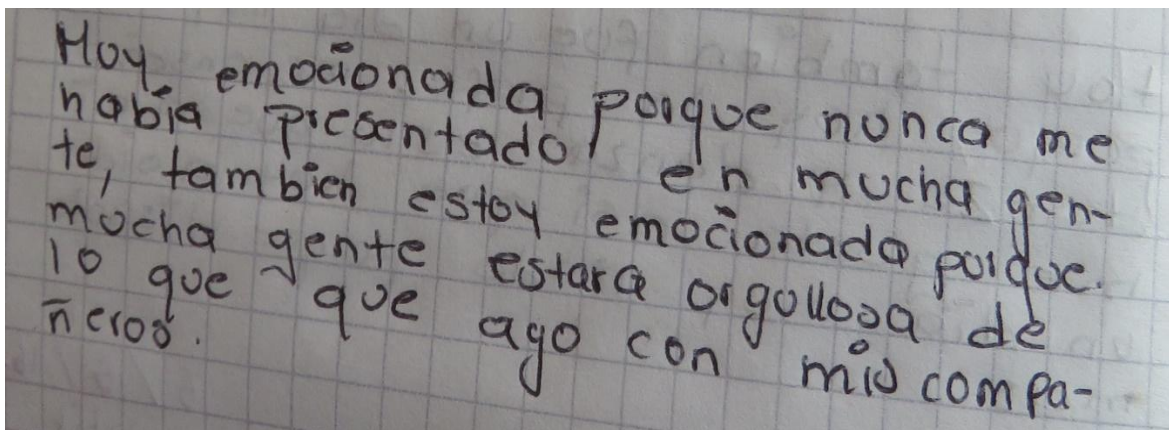 Hoy emocionada porque nunca me
habia presentado en mucha gen-
te, tambien estoy emocionada porque.
mucha gente estara orgullosa de
lo que que ago con mis compa-
ñeros.